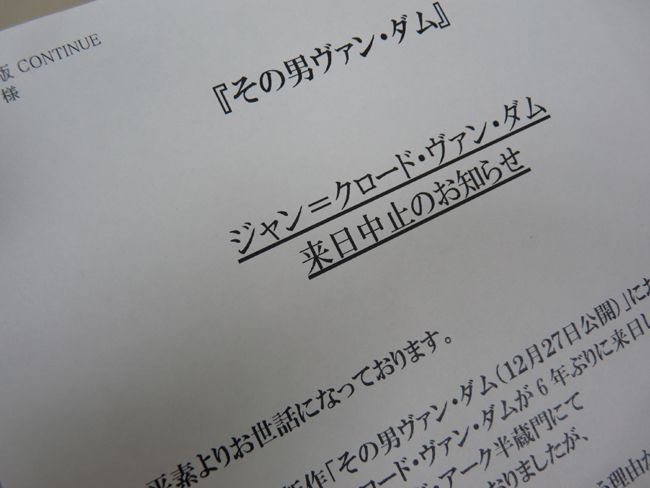 版 CONTINUE
様
『その男ヴァン・ダム』
ジャン＝クロード・ヴァン・ダム
来日中止のお知らせ
平素よりお世話になっております。
新作「その男ヴァン・ダム（12月27日公開）」にお
ロード・ヴァン・ダムが6年ぶりに来日し
・アーク半蔵門にて
おりましたが、
理由か